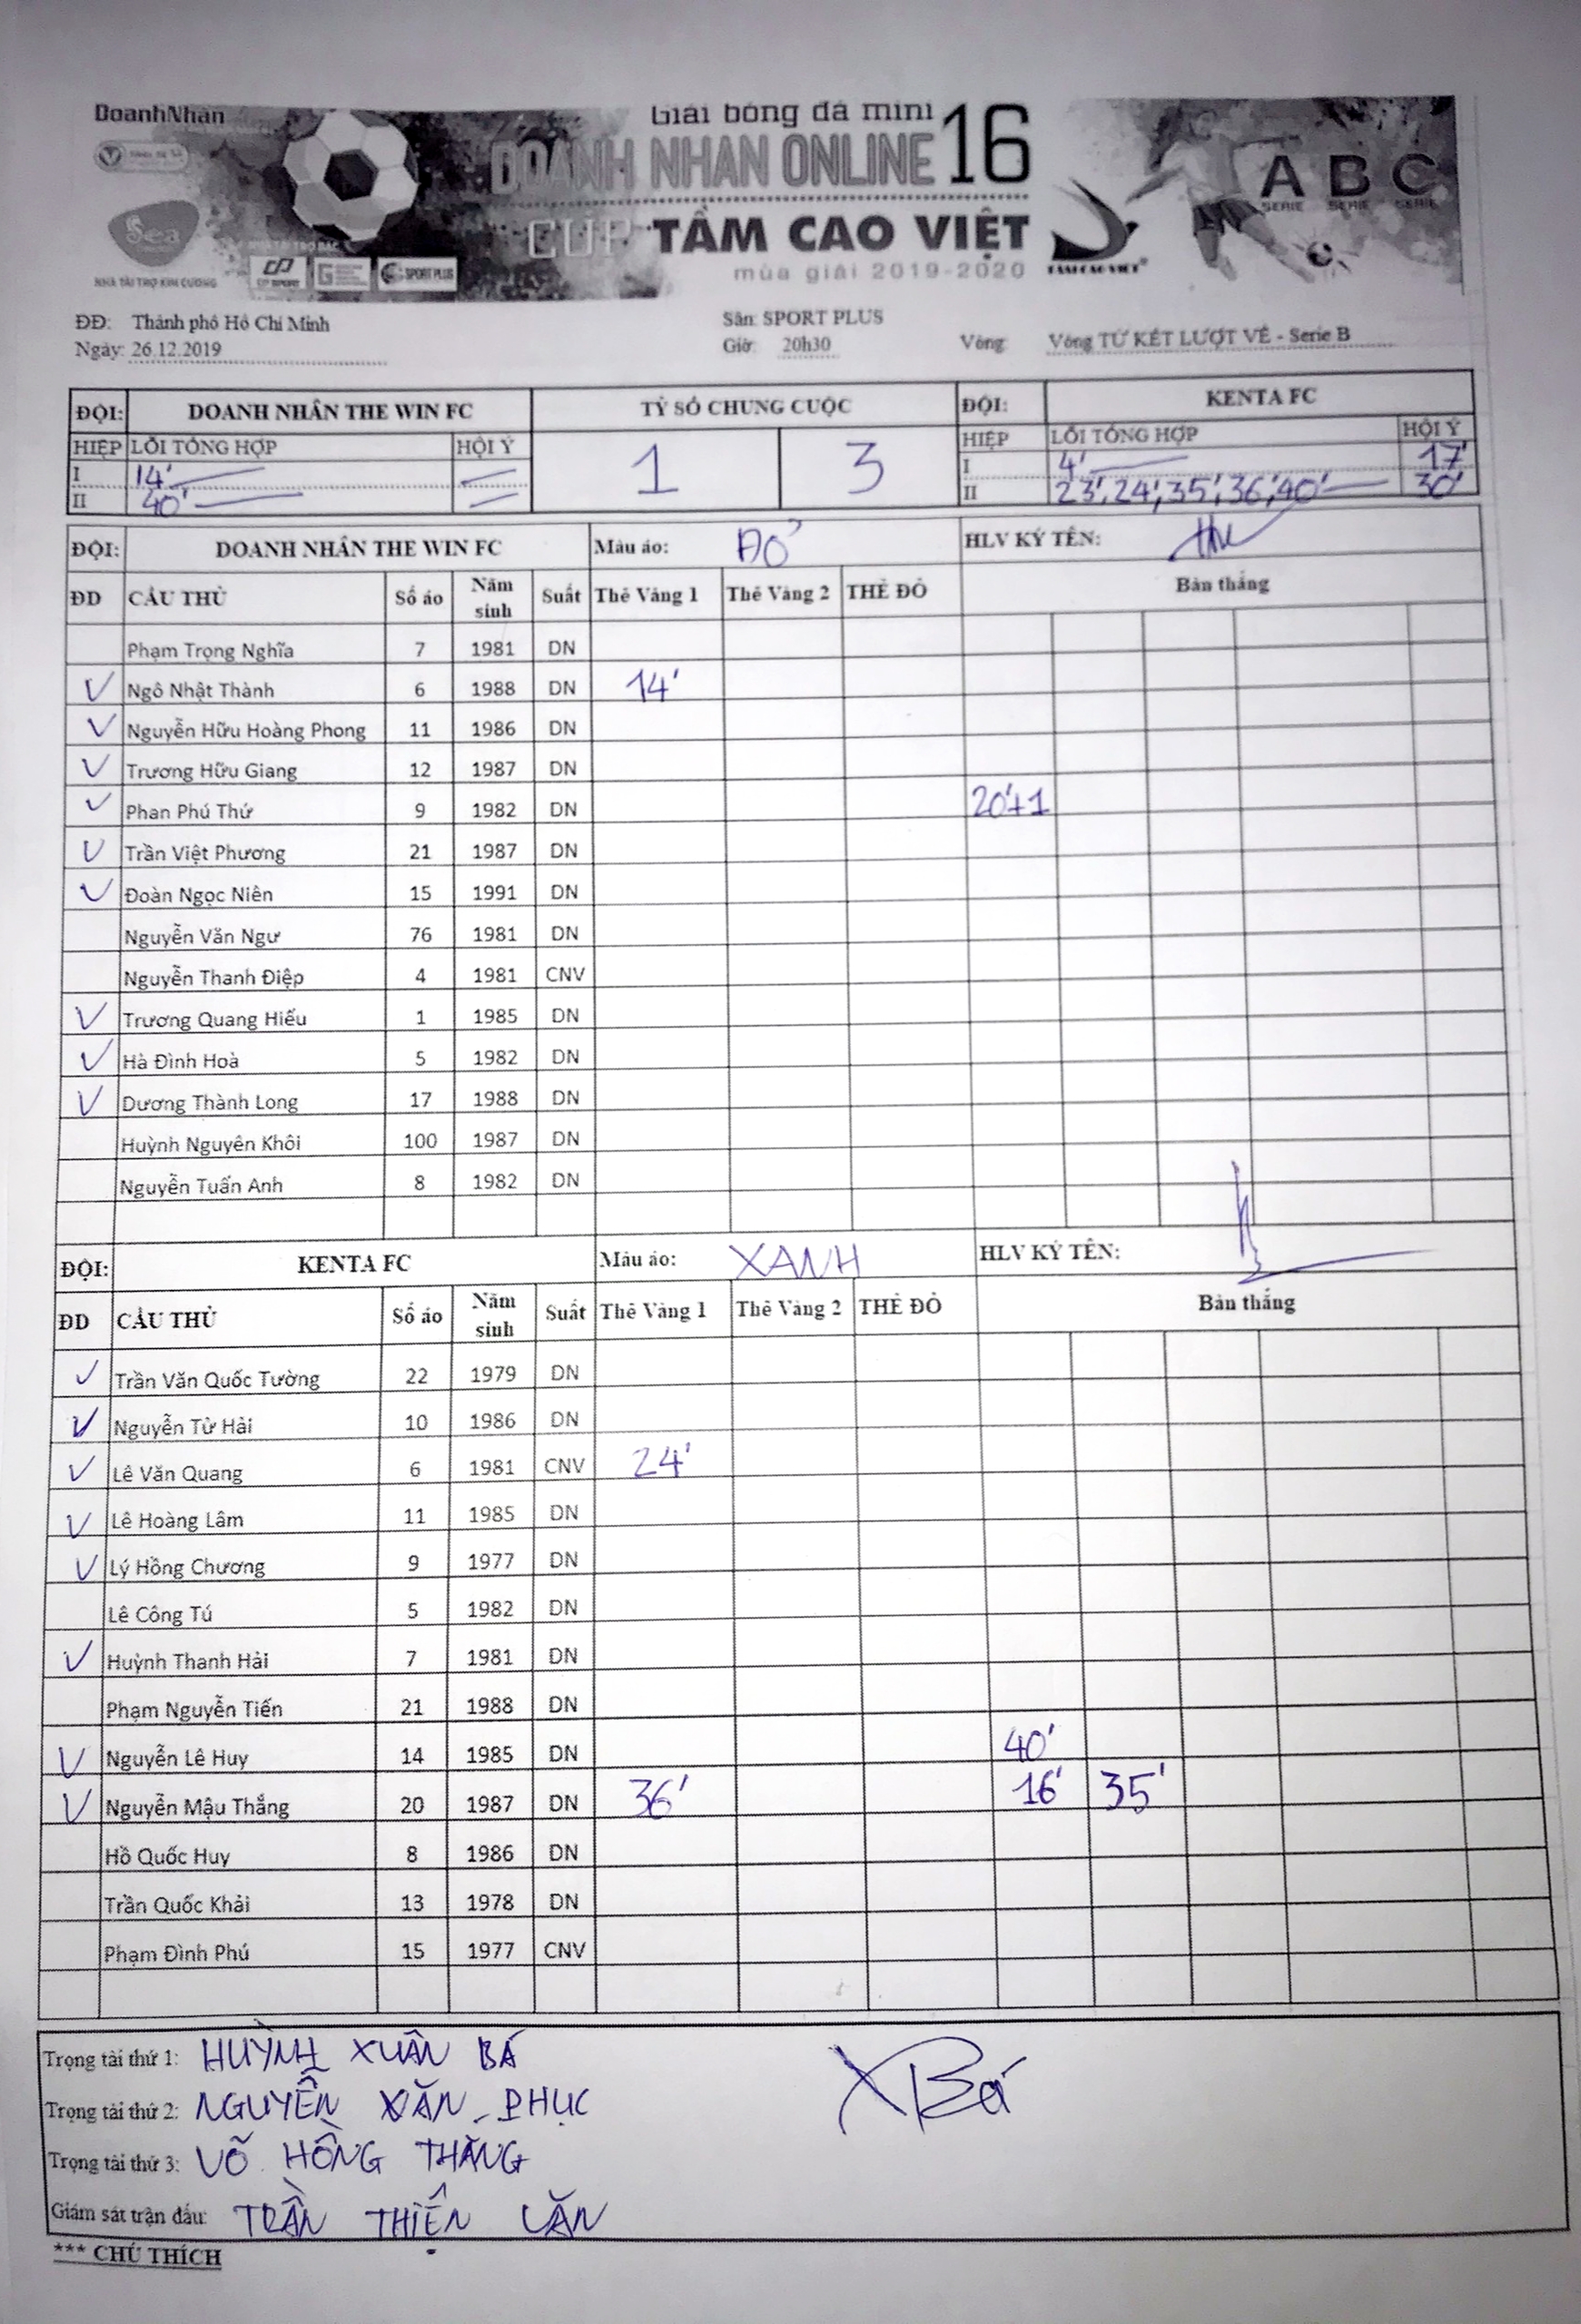 DoanhNhân
Giải bóng đá mini
DOANH NHAN ONLINE 16
CUP TẦM CAO VIỆT
mùa giải 2019-2020
A B C
SERIE SERIE SERIE
Sea
NHÀ TÀI TRỢ KIM CƯƠNG
SPORT PLUS
TẦM CAO VIỆT
ĐĐ: Thành phố Hồ Chí Minh
Sân: SPORT PLUS
Ngày: 26.12.2019
Giờ: 20h30
Vòng: Vòng TỨ KẾT LƯỢT VỀ - Serie B
ĐỘI: DOANH NHÂN THE WIN FC TỶ SỐ CHUNG CUỘC ĐỘI: KENTA FC
HIỆP LỖI TỔNG HỢP HỘI Ý 1 3 HIỆP LỖI TỔNG HỢP HỘI Ý
I 14' I 4' 17'
II 40' II 23', 24', 35', 36', 40' 30'
ĐỘI: DOANH NHÂN THE WIN FC Màu áo: ĐỎ HLV KÝ TÊN:
ĐD CẦU THỦ Số áo Năm sinh Suất Thẻ Vàng 1 Thẻ Vàng 2 THẺ ĐỎ Bàn thắng
Phạm Trọng Nghĩa 7 1981 DN
V Ngô Nhật Thành 6 1988 DN 14'
V Nguyễn Hữu Hoàng Phong 11 1986 DN
V Trương Hữu Giang 12 1987 DN
V Phan Phú Thứ 9 1982 DN 20'+1
V Trần Việt Phương 21 1987 DN
V Đoàn Ngọc Niên 15 1991 DN
Nguyễn Văn Ngư 76 1981 DN
Nguyễn Thanh Điệp 4 1981 CNV
V Trương Quang Hiếu 1 1985 DN
V Hà Đình Hoà 5 1982 DN
V Dương Thành Long 17 1988 DN
Huỳnh Nguyên Khôi 100 1987 DN
Nguyễn Tuấn Anh 8 1982 DN
ĐỘI: KENTA FC Màu áo: XANH HLV KÝ TÊN:
ĐD CẦU THỦ Số áo Năm sinh Suất Thẻ Vàng 1 Thẻ Vàng 2 THẺ ĐỎ Bàn thắng
V Trần Văn Quốc Tường 22 1979 DN
V Nguyễn Từ Hải 10 1986 DN
V Lê Văn Quang 6 1981 CNV 24'
V Lê Hoàng Lâm 11 1985 DN
V Lý Hồng Chương 9 1977 DN
Lê Công Tú 5 1982 DN
V Huỳnh Thanh Hải 7 1981 DN
Phạm Nguyễn Tiến 21 1988 DN
V Nguyễn Lê Huy 14 1985 DN 40'
V Nguyễn Mậu Thắng 20 1987 DN 36' 16' 35'
Hồ Quốc Huy 8 1986 DN
Trần Quốc Khải 13 1978 DN
Phạm Đình Phú 15 1977 CNV
Trọng tài thứ 1: HUỲNH XUÂN BÁ
XBá
Trọng tài thứ 2: NGUYỄN VĂN PHỤC
Trọng tài thứ 3: VÕ HỒNG THẮNG
Giám sát trận đấu: TRẦN THIỆN VĂN
*** CHÚ THÍCH